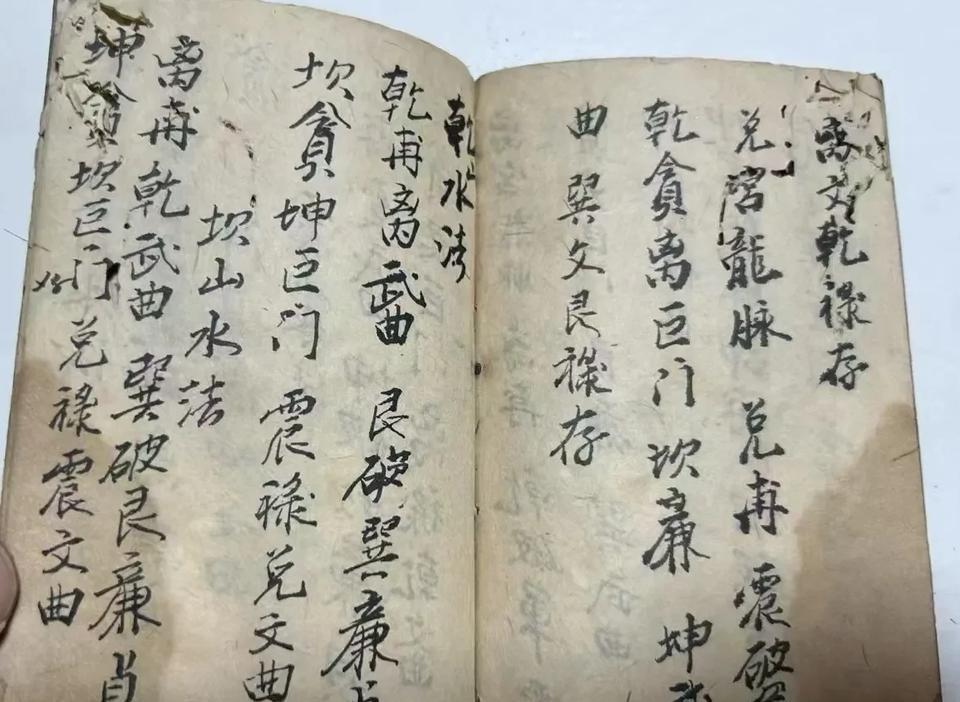 离文乾祿存
兑宮龍脉 兑再震破
乾貪离巨门坎廉 坤武
曲巽文艮祿存
乾水法
乾再离武曲 艮破巽廉
坎貪坤巨门 震祿兑文曲
坎山水法
离再乾武曲 巽破艮廉貞
坤貪坎巨门兑祿震文曲